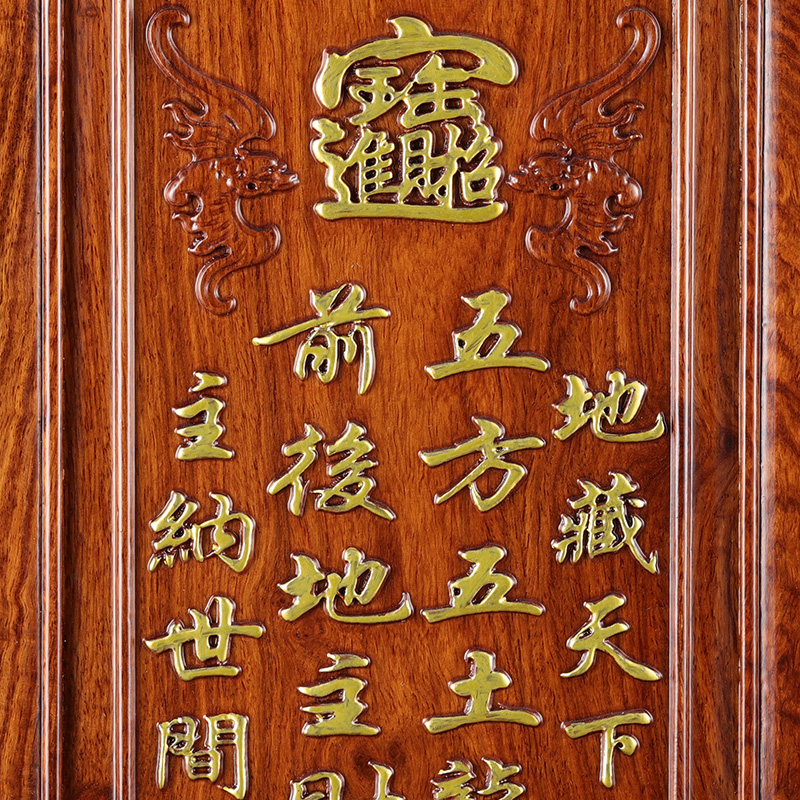 招財進寶
地藏天下
五方五土
前後地主
主納世間